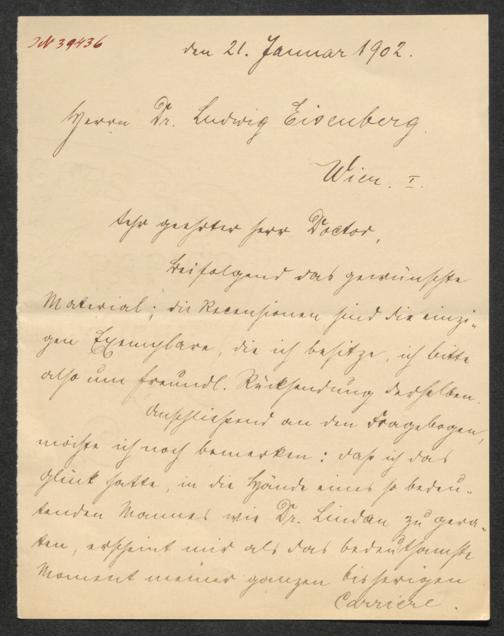 IN 39436
den 21. Januar 1902.
Herrn Dr. Ludwig Eisenberg.
Wien. I.
Sehr geehrter Herr Doctor,
Beifolgend das gewünschte
Material; die Recensionen sind die einzi-
gen Exemplare, die ich besitze, ich bitte
also um freundl. Rücksendung derselben.
Anschliessend an den Fragebogen,
möchte ich noch bemerken: daß ich das
Glück hatte, in die Hände eines so bedeu-
tenden Mannes wie Dr. Lindau zu gera-
ten, erscheint mir als das bedeutsamste
Moment meiner ganzen bisherigen
Carriere.